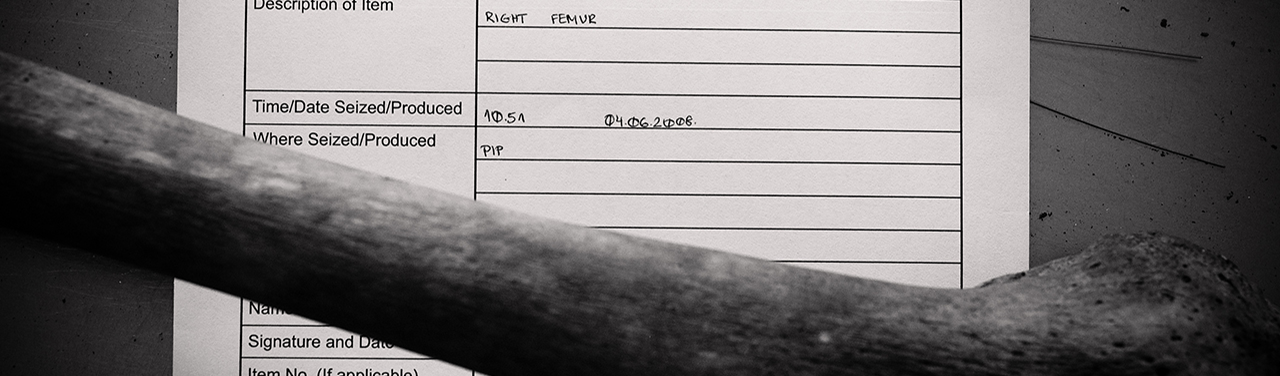 Description of Item
RIGHT FEMUR
Time/Date Seized/Produced
10.51 04.06.2008.
Where Seized/Produced
PIP
Signature and Date
Item No. (If applicable)